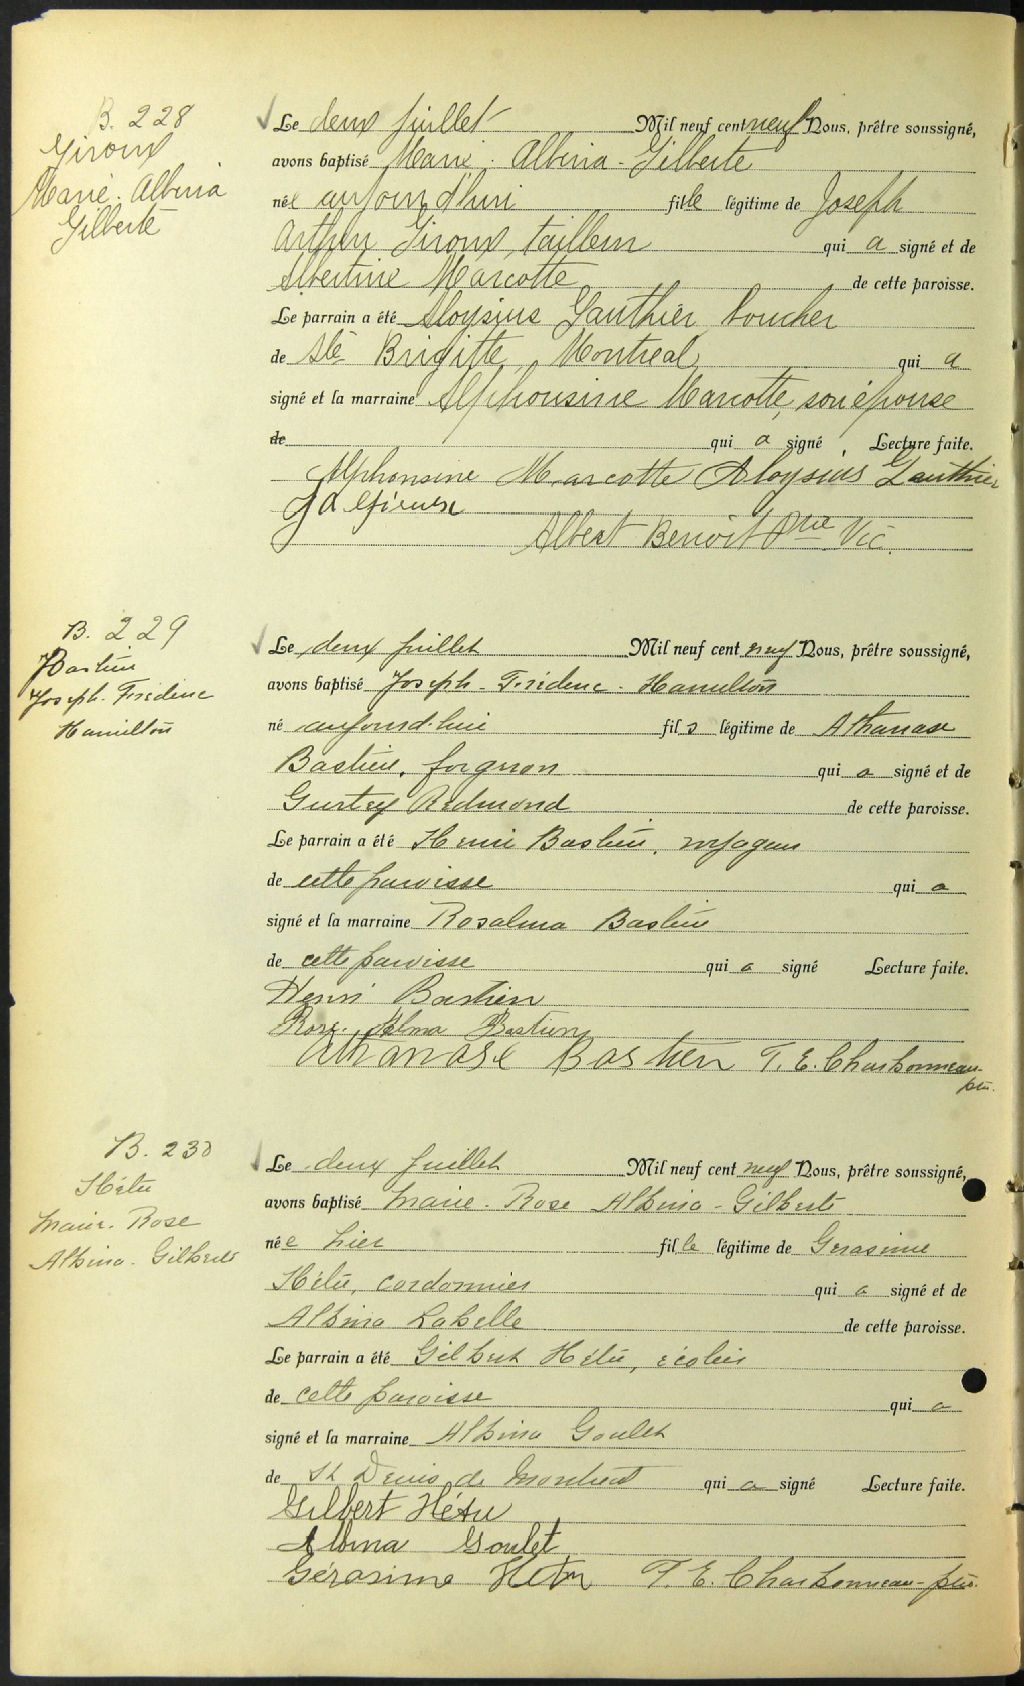 B. 228
Giroux
Marie. Albina
Gilberte
Le deux juillet Mil neuf cent neuf Nous, prêtre soussigné,
avons baptisé Marie. Albina - Gilberte
née aujourd'hui fille légitime de Joseph
Arthur Giroux, tailleur qui a signé et de
Albertine Marcotte de cette paroisse.
Le parrain a été Aloysius Gauthier, boucher
de Ste Brigitte, Montreal, qui a
signé et la marraine Alphonsine Marcotte, son épouse
de qui a signé. Lecture faite.
Alphonsine Marcotte Aloysius Gauthier
J a Giroux
Albert Benoit Ptre Vic.
B. 229
Bastien
Joseph. Frédéric
Hamilton
Le deux juillet Mil neuf cent neuf Nous, prêtre soussigné,
avons baptisé Joseph - Frédéric - Hamilton
né aujourd'hui fils légitime de Athanase
Bastien, forgeron qui a signé et de
Redmond de cette paroisse.
Le parrain a été Henri Bastien,
de cette paroisse qui a
signé et la marraine Rosalma Bastien
de cette paroisse qui a signé Lecture faite.
Henri Bastien
Rose. Alma Bastien
Athanase Bastien T. E. Charbonneau
ptre.
B. 230
Hétu
Marie. Rose
Albina. Gilberte
Le deux juillet Mil neuf cent neuf Nous, prêtre soussigné,
avons baptisé Marie - Rose Albina - Gilberte
née hier fille légitime de Gerasime
Hétu, cordonnier qui a signé et de
Albina Labelle de cette paroisse.
Le parrain a été Gilbert Hétu, écolier
de cette paroisse qui a
signé et la marraine Albina Goulet
de St Denis de Montreal qui a signé Lecture faite.
Gilbert Hétu
Albina Goulet
Gérasime Hetu T. E. Charbonneau - ptre.